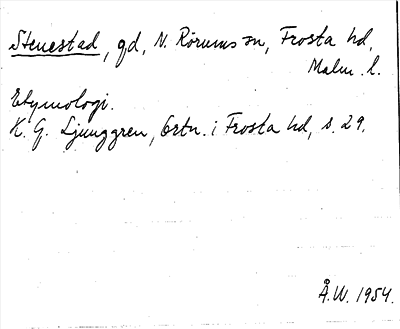 Stenestad, gd, N. Rörums sn, Frosta hd,
Malm. l.
Etymologi.
K. G. Ljunggren, Ortn. i Frosta hd, s. 29.
Å.W. 1954.